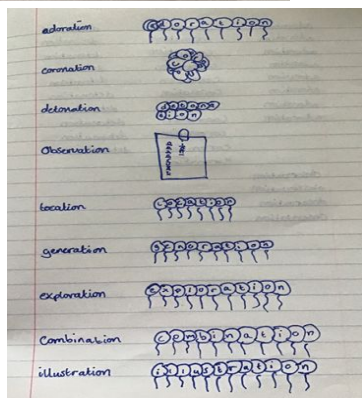 adoration adoration
coronation
detonation detona
tion
Observation
location location
generation generation
exploration exploration
Combination combination
illustration illustration